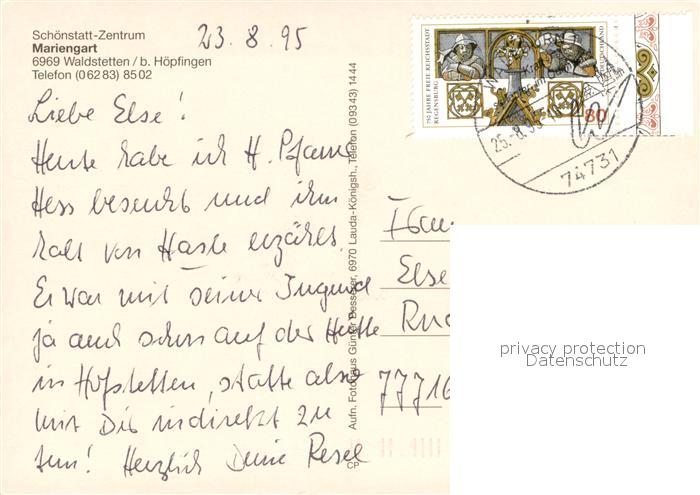 Schönstatt-Zentrum
Mariengart
6969 Waldstetten / b. Höpfingen
Telefon (0 62 83) 85 02
23.8.95
Liebe Else!
Heute habe ich H. Pfarrer
Hess besucht und ihm
halt von Hasle erzählt.
Er war mit seiner Jugend
ja auch schon auf der Hütte
in Hofstetten, hatte also
mit Dir indirekt zu
tun! Herzlich Deine Resel
Aufn. Fotohaus Günter Besserer, 6970 Lauda-Königsh., Telefon (09343) 1444
CP
750 JAHRE FREIE REICHSSTADT
REGENSBURG
DEUTSCHLAND
80
25.-8.95
74731
Frau
Else
77716
privacy protection
Datenschutz